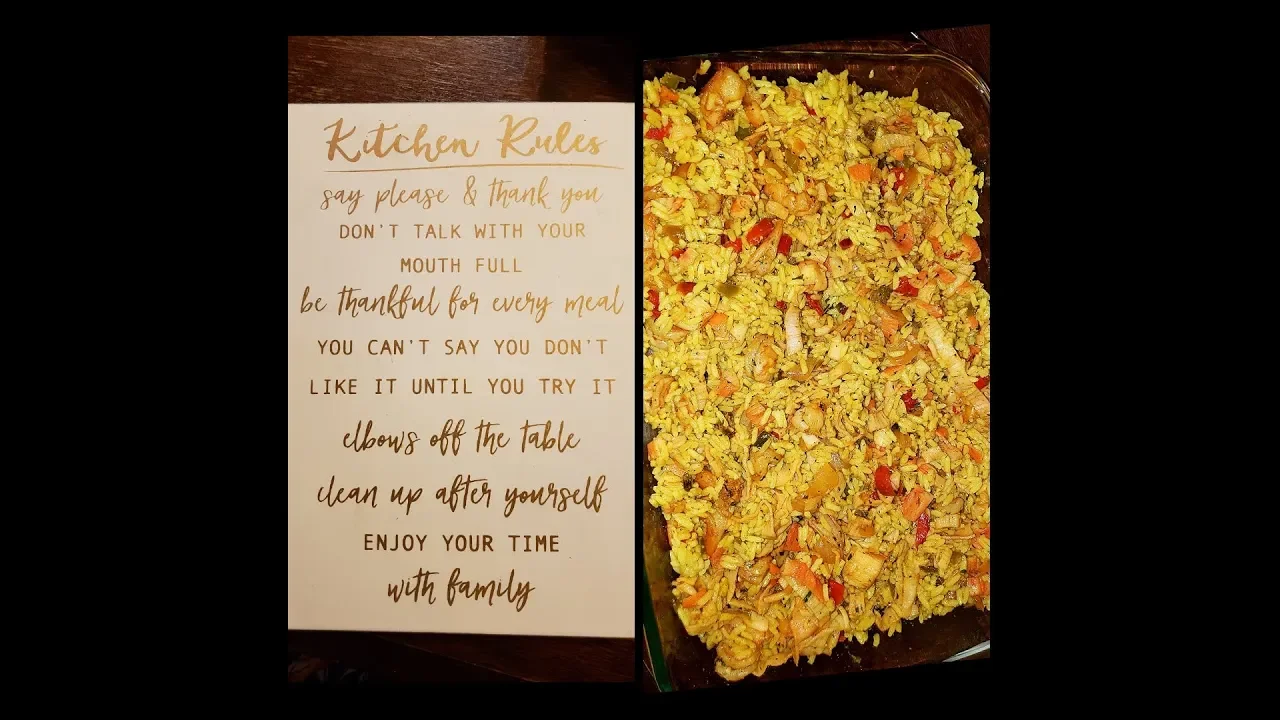 Kitchen Rules
say please & thank you
DON'T TALK WITH YOUR
MOUTH FULL
be thankful for every meal
YOU CAN'T SAY YOU DON'T
LIKE IT UNTIL YOU TRY IT
elbows off the table
clean up after yourself
ENJOY YOUR TIME
with family